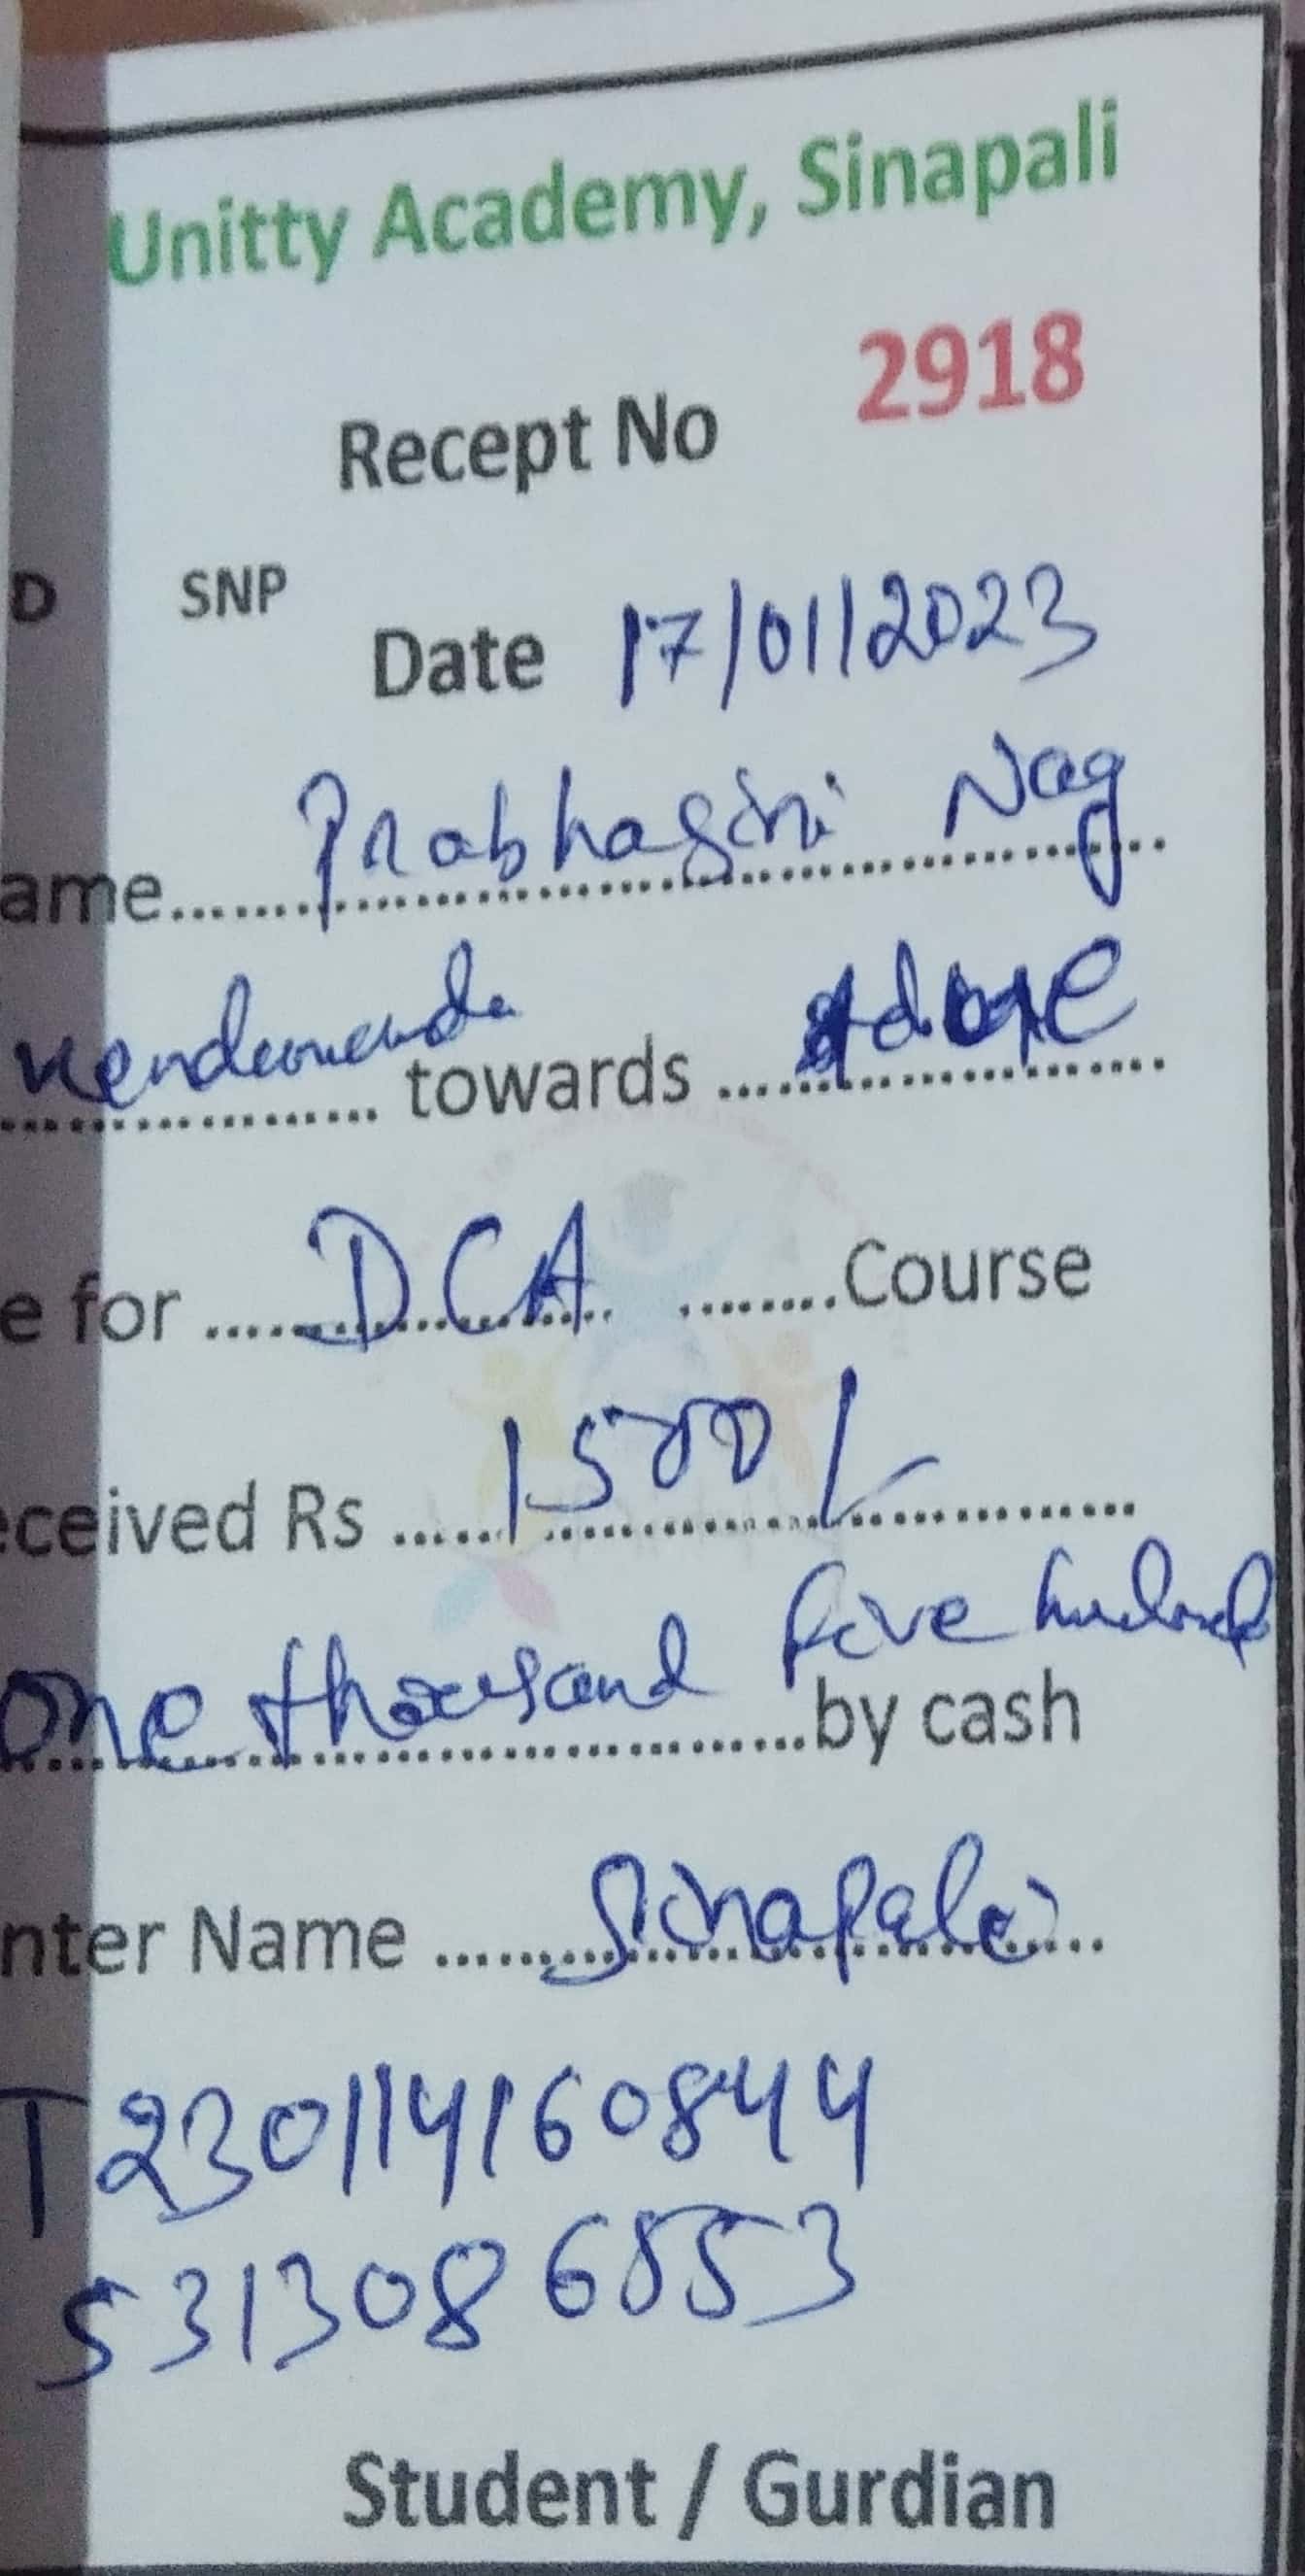 Unitty Academy, Sinapali
Recept No 2918
D SNP
Date 17/01/2023
ame........ Prabhasini Nag
................ towards ................
e for ..... DCA ........Course
eceived Rs ...... 1500/- ................
One thousand five hundred
................by cash
nter Name ....... Sinapali ...
T230114160844
5313086553
Student / Gurdian